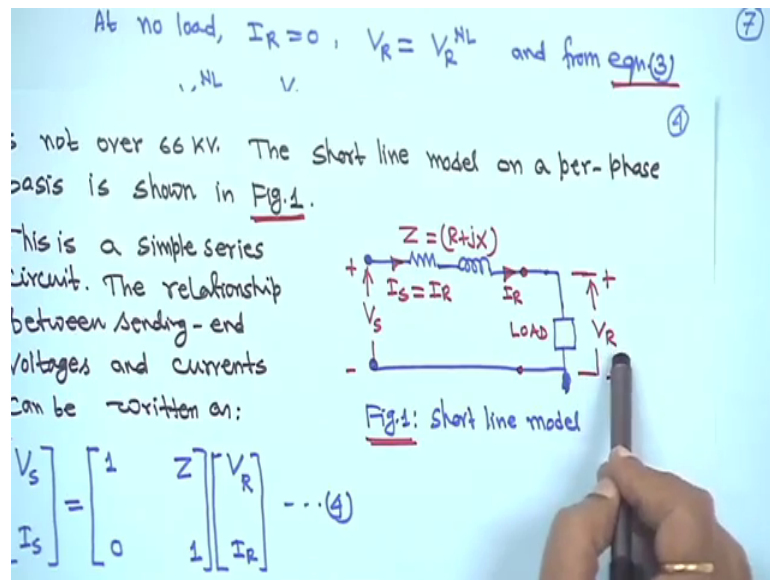 At no load, I_R = 0, V_R = V_R^NL and from eqn.(3)
7
NL V
4
not over 66 KV. The short line model on a per-phase
basis is shown in Fig.1.
This is a simple series
circuit. The relationship
between sending-end
voltages and currents
can be written as:
Z = (R+jX)
+
I_S = I_R
I_R
+
V_S
LOAD
V_R
-
Fig.1: Short line model
[V_S I_S] = [1 Z 0 1] [V_R I_R] ---(4)